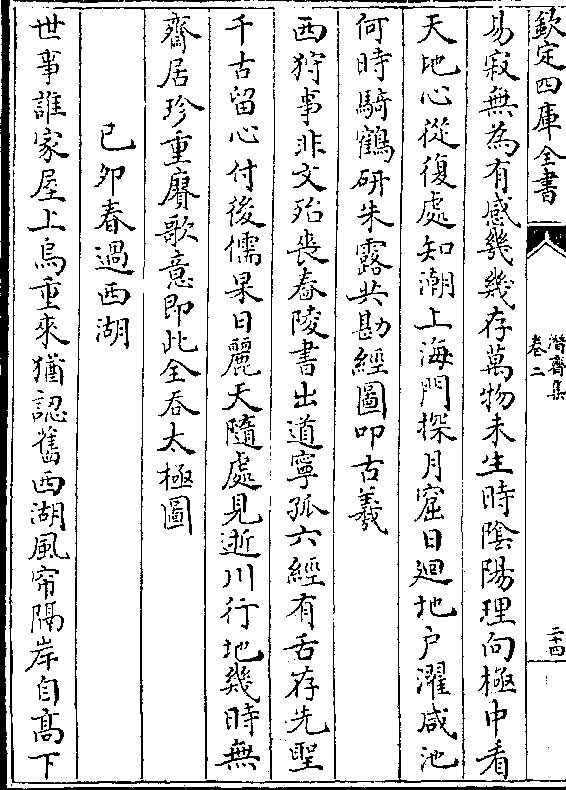 欽定四庫全書
潛齋集
卷二
二十四
易寂無為有感幾幾存萬物未生時陰陽理向極中看
天地心從復處知潮上海門探月窟日廻地户濯咸池
何時騎鶴研朱露共勘經圖叩古羲
西狩事非文殆喪舂陵書出道寧孤六經有舌存先聖
千古留心付後儒杲日麗天隨處見逝川行地幾時無
齋居珍重賡歌意即此全吞太極圖
己夘春過西湖
世事誰家屋上烏重來猶認舊西湖風帘隔岸自高下